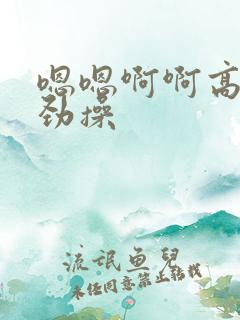 嗯嗯啊啊高
劲操
流氓鱼儿
未经同意禁止转载